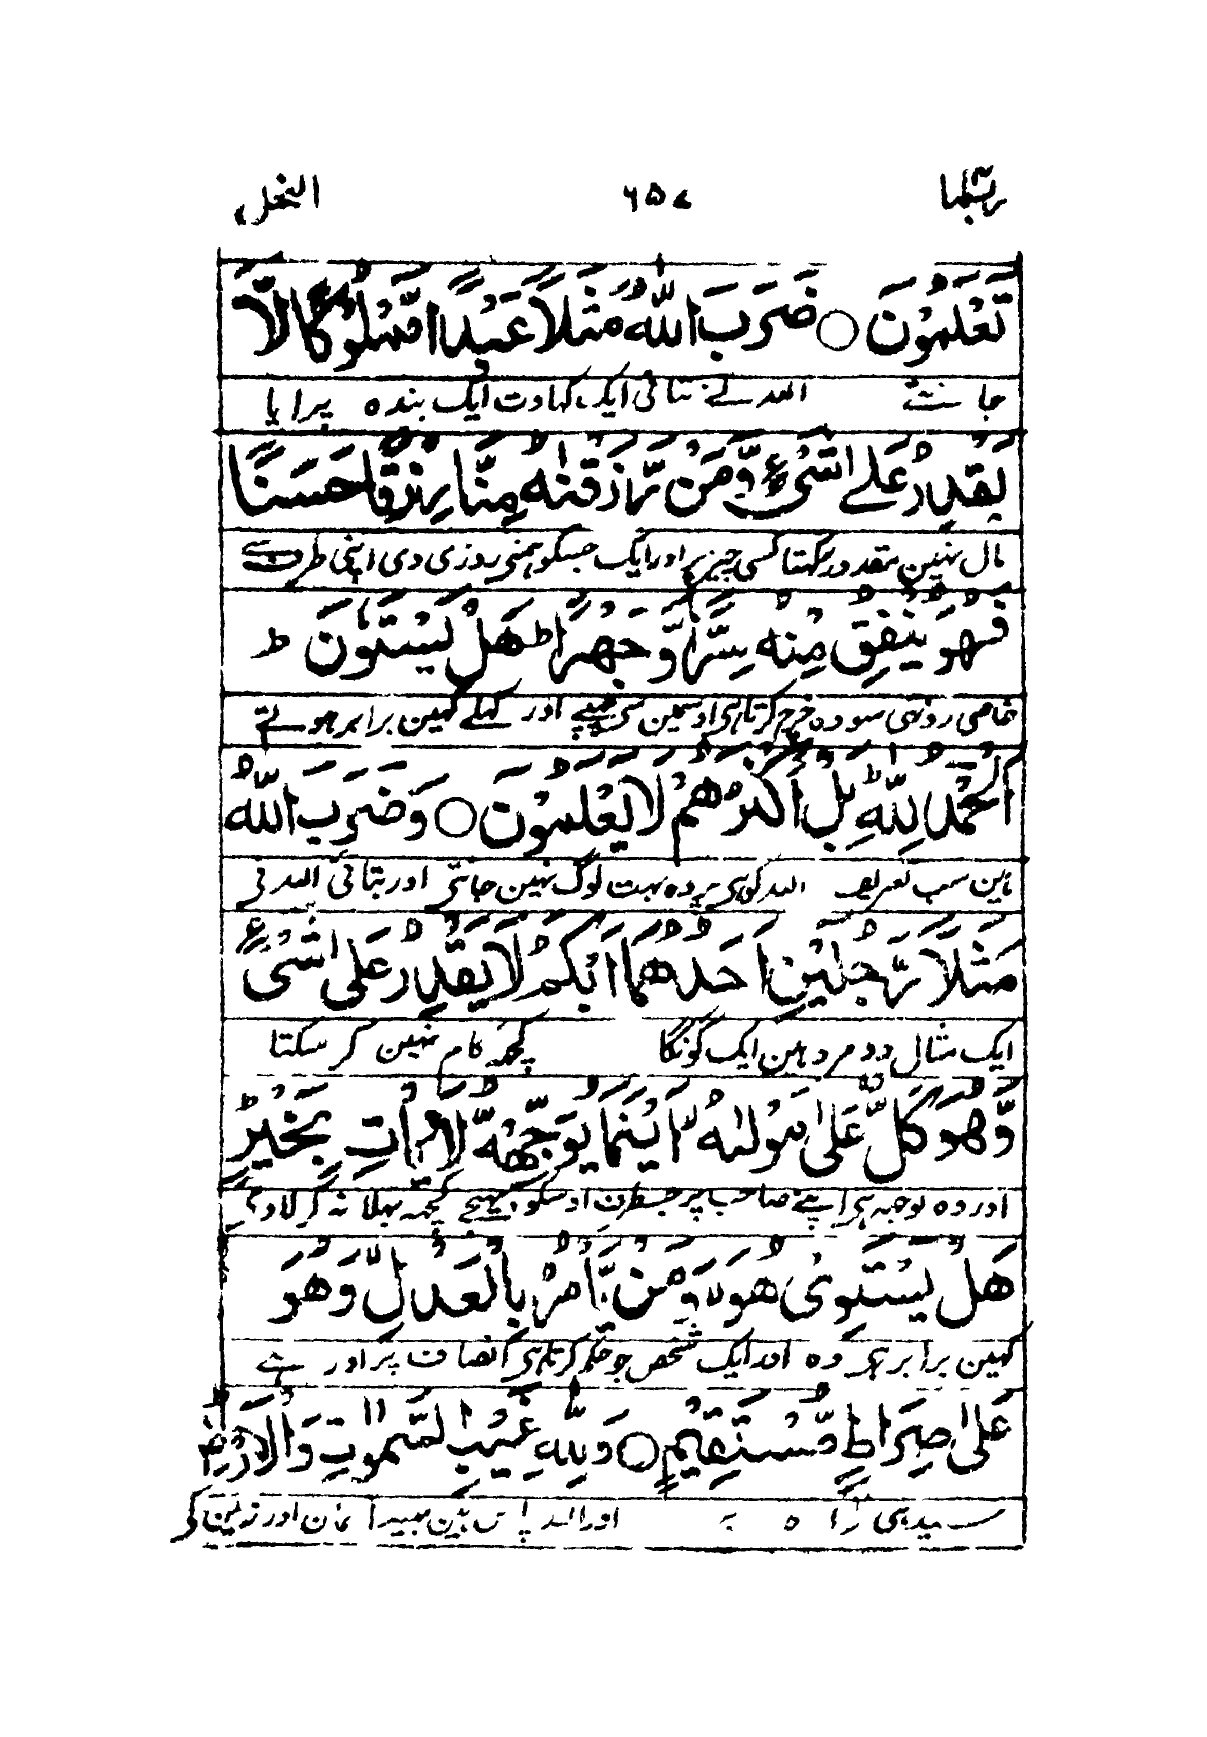 ربما ۶۵۷ النحل
تَعْلَمُوْنَ ○ ضَرَبَ اللّٰهُ مَثَلًا عَبْدًا مَّمْلُوْكًا لَّا
جانتے اللہ نے بتائی ایک کہاوت ایک بندہ پرایا
يَقْدِرُ عَلٰى شَىْءٍ وَّمَنْ رَّزَقْنٰهُ مِنَّا رِزْقًا حَسَنًا
مال نہین مقدور رکہتا کسی چیز پر اور ایک جسکو ہمنے روزی دی اپنی طرف سے
فَهُوَ يُنْفِقُ مِنْهُ سِرًّا وَّجَهْرًا ط هَلْ يَسْتَوٗنَ ط
خاصی روزی سو وہ خرچ کرتا ہی اوسمین سی چہپے اور کہلے کہین برابر ہوتے
اَلْحَمْدُ لِلّٰهِ ط بَلْ اَكْثَرُهُمْ لَا يَعْلَمُوْنَ ○ وَضَرَبَ اللّٰهُ
ہین سب تعریف اللہ کو ہی پر وہ بہت لوگ نہین جانتی اور بتائی اللہ نی
مَثَلًا رَّجُلَيْنِ اَحَدُهُمَا اَبْكَمُ لَا يَقْدِرُ عَلٰى شَىْءٍ
ایک مثال دو مرد ہین ایک گونگا کچہہ کام نہین کر سکتا
وَّهُوَ كَلٌّ عَلٰى مَوْلٰىهُ لا اَيْنَمَا يُوَجِّهْهُّ لَا يَاْتِ بِخَيْرٍ ط
اور وہ بوجہہ ہی اپنے صاحب پر جسطرف اوسکو بہیجے کچہہ بہلا نہ کر لاوے
هَلْ يَسْتَوِىْ هُوَ لا وَمَنْ يَّاْمُرُ بِالْعَدْلِ لا وَهُوَ
کہین برابر ہی وہ اور ایک شخص جو حکم کرتا ہی انصاف پر اور ہے
عَلٰى صِرَاطٍ مُّسْتَقِيْمٍ ○ وَلِلّٰهِ غَيْبُ السَّمٰوٰتِ وَالْاَرْضِ ط
سیدہی راہ پہ اور اللہ پاس ہین بہید آسمان اور زمین کی